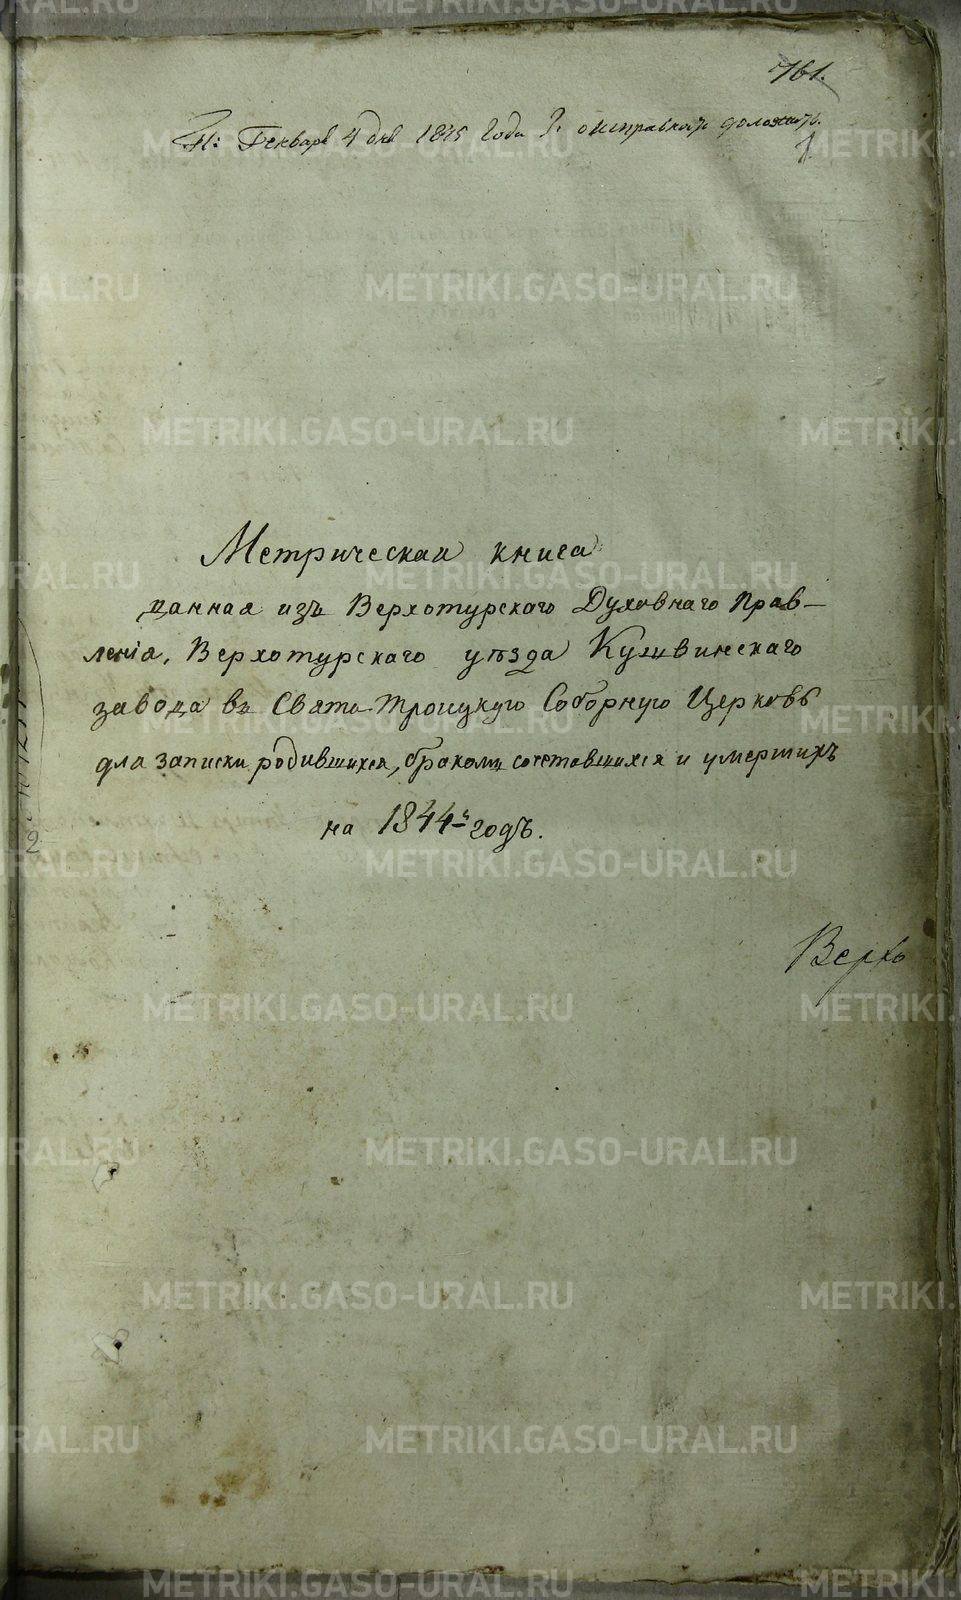 761.
П: Генваря 4 дня 1845 года. о исправности доложить.
Метрическая книга
данная изъ Верхотурскаго Духовнаго Прав-
ленія, Верхотурскаго уѣзда Кушвинскаго
завода въ Свято Троицкую Соборную Церковь
для записки родившихся, бракомъ сочетавшихся и умершихъ
на 1844-й годъ.
Верхо
2
METRIKI.GASO-URAL.RU